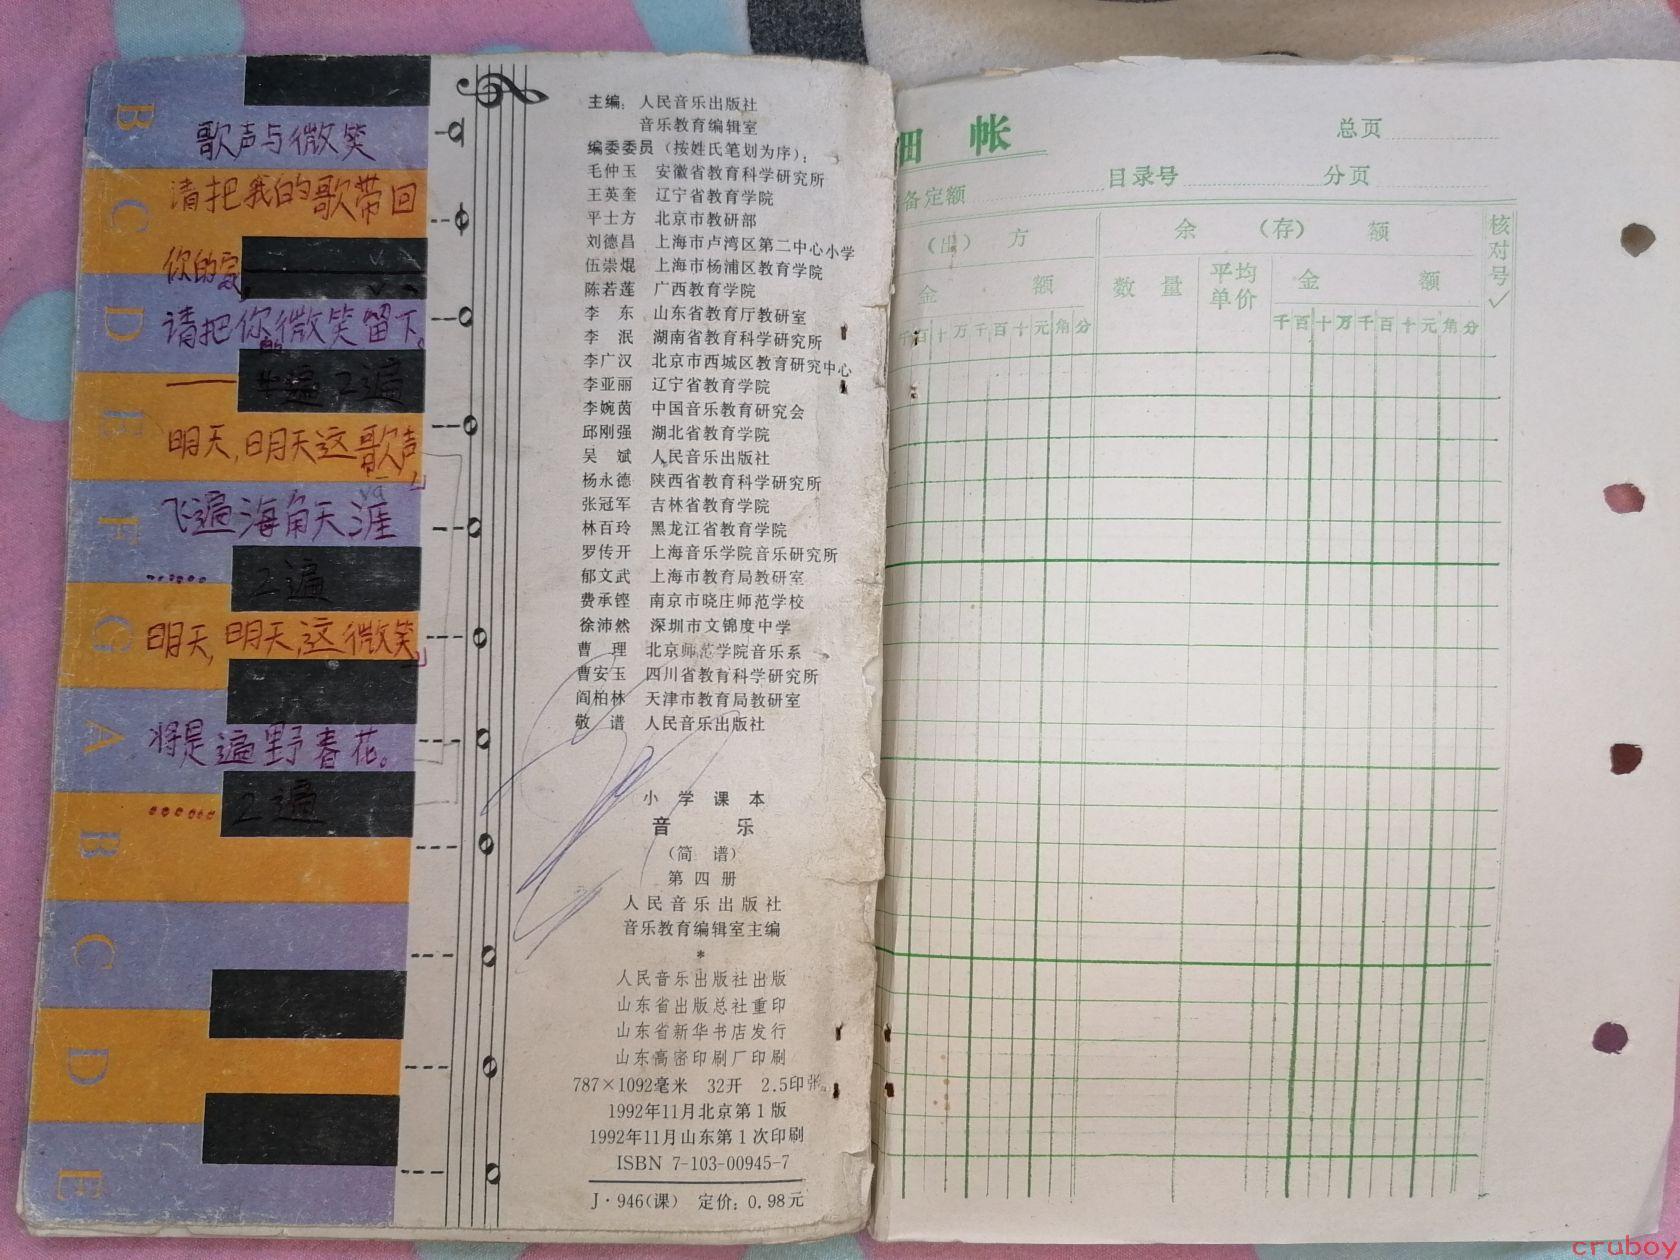 B
C
D
E
F
G
A
B
C
D
E
歌声与微笑
请把我的歌带回
你的家,
请把你的微笑留下。
2遍
明天,明天这歌声,
yá
飞遍海角天涯
…… 2遍
明天,明天,这微笑
将是遍野春花。
…… 2遍
主编: 人民音乐出版社
音乐教育编辑室
编委委员(按姓氏笔划为序):
毛仲玉 安徽省教育科学研究所
王英奎 辽宁省教育学院
平士方 北京市教研部
刘德昌 上海市卢湾区第二中心小学
伍崇焜 上海市杨浦区教育学院
陈若莲 广西教育学院
李 东 山东省教育厅教研室
李 泯 湖南省教育科学研究所
李广汉 北京市西城区教育研究中心
李亚丽 辽宁省教育学院
李婉茵 中国音乐教育研究会
邱刚强 湖北省教育学院
吴 斌 人民音乐出版社
杨永德 陕西省教育科学研究所
张冠军 吉林省教育学院
林百玲 黑龙江省教育学院
罗传开 上海音乐学院音乐研究所
郁文武 上海市教育局教研室
费承铿 南京市晓庄师范学校
徐沛然 深圳市文锦度中学
曹 理 北京师范学院音乐系
曹安玉 四川省教育科学研究所
阎柏林 天津市教育局教研室
敬 谱 人民音乐出版社
小学课本
音 乐
(简 谱)
第四册
人民音乐出版社
音乐教育编辑室主编
*
人民音乐出版社出版
山东省出版总社重印
山东省新华书店发行
山东高密印刷厂印刷
787×1092毫米 32开 2.5印张
1992年11月北京第1版
1992年11月山东第1次印刷
ISBN 7-103-00945-7
J·946(课) 定价: 0.98元
细 帐
总页
备定额 目录号 分页
(出) 方 余 (存) 额 核对号✓
金 额 数 量 平均单价 金 额
千百十万千百十元角分 千百十万千百十元角分
cruboy